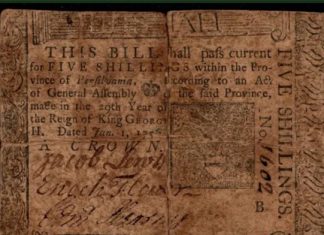 THIS BILL shall pass current
for FIVE SHILLINGS within the Pro-
vince of Pensilvania, according to an Act
of General Assembly of the said Province,
made in the 29th Year of
the Reign of King GEORGE
II. Dated Jan. 1, 1756
A CROWN.
Jacob Lewis
Enoch Flower
FIVE SHILLINGS.
No. 1602
B